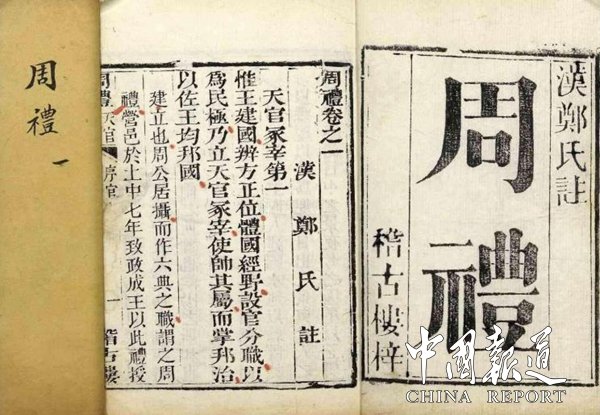 漢鄭氏註
周禮
稽古樓梓
周禮卷之一
漢 鄭 氏 註
天官冢宰第一
惟王建國辨方正位體國經野設官分職以
爲民極乃立天官冢宰使帥其屬而掌邦治
以佐王均邦國
建立也周公居攝而作六典之職謂之周
禮營邑於土中七年致政成王以此禮授
周禮 天官 序官 一 稽古樓
周禮 一
中國報道
CHINA REPORT